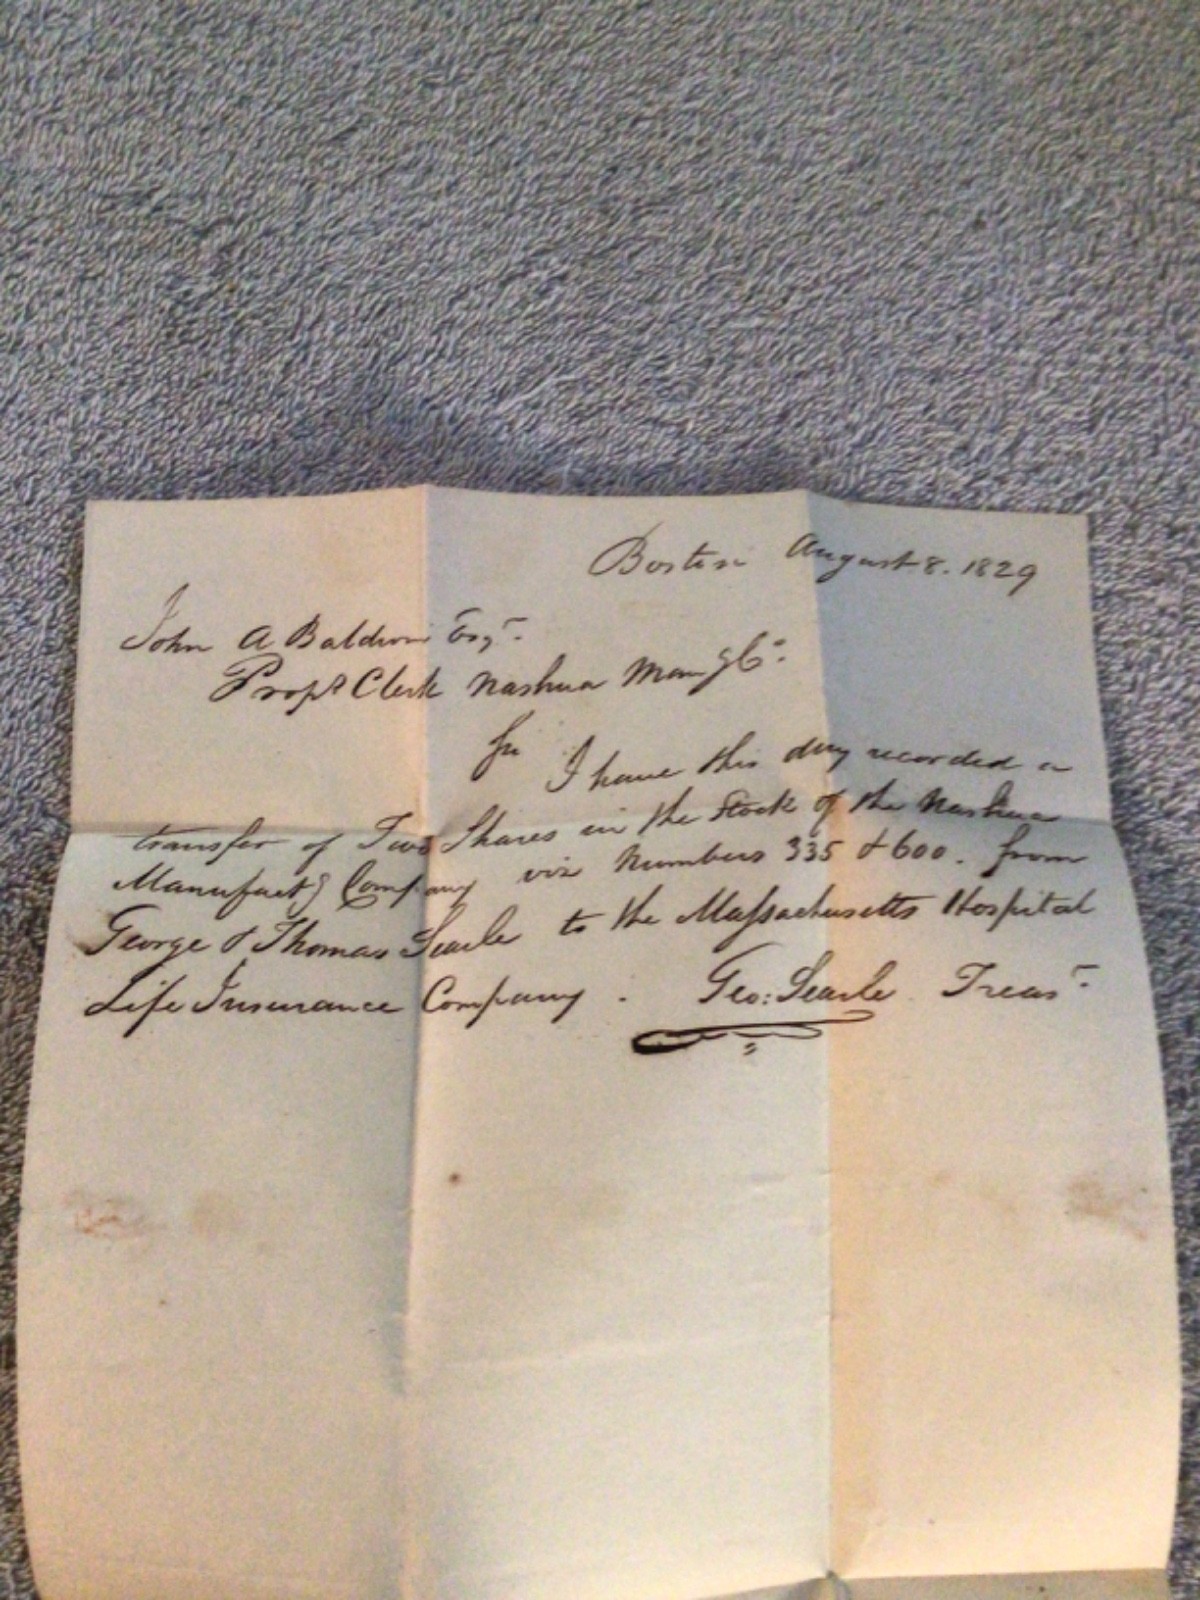 Boston August 8. 1829
John A Baldwin Esqr.
Propr Clerk Nashua Manfg Co.
Sir I have this day recorded a
transfer of Two Shares in the Stock of the Nashua
Manufactg Company viz Numbers 335 & 600. from
George & Thomas Searle to the Massachusetts Hospital
Life Insurance Company. Geo: Searle Treasr